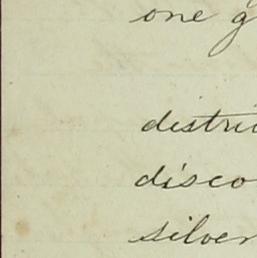 one g
distri
disco
silver